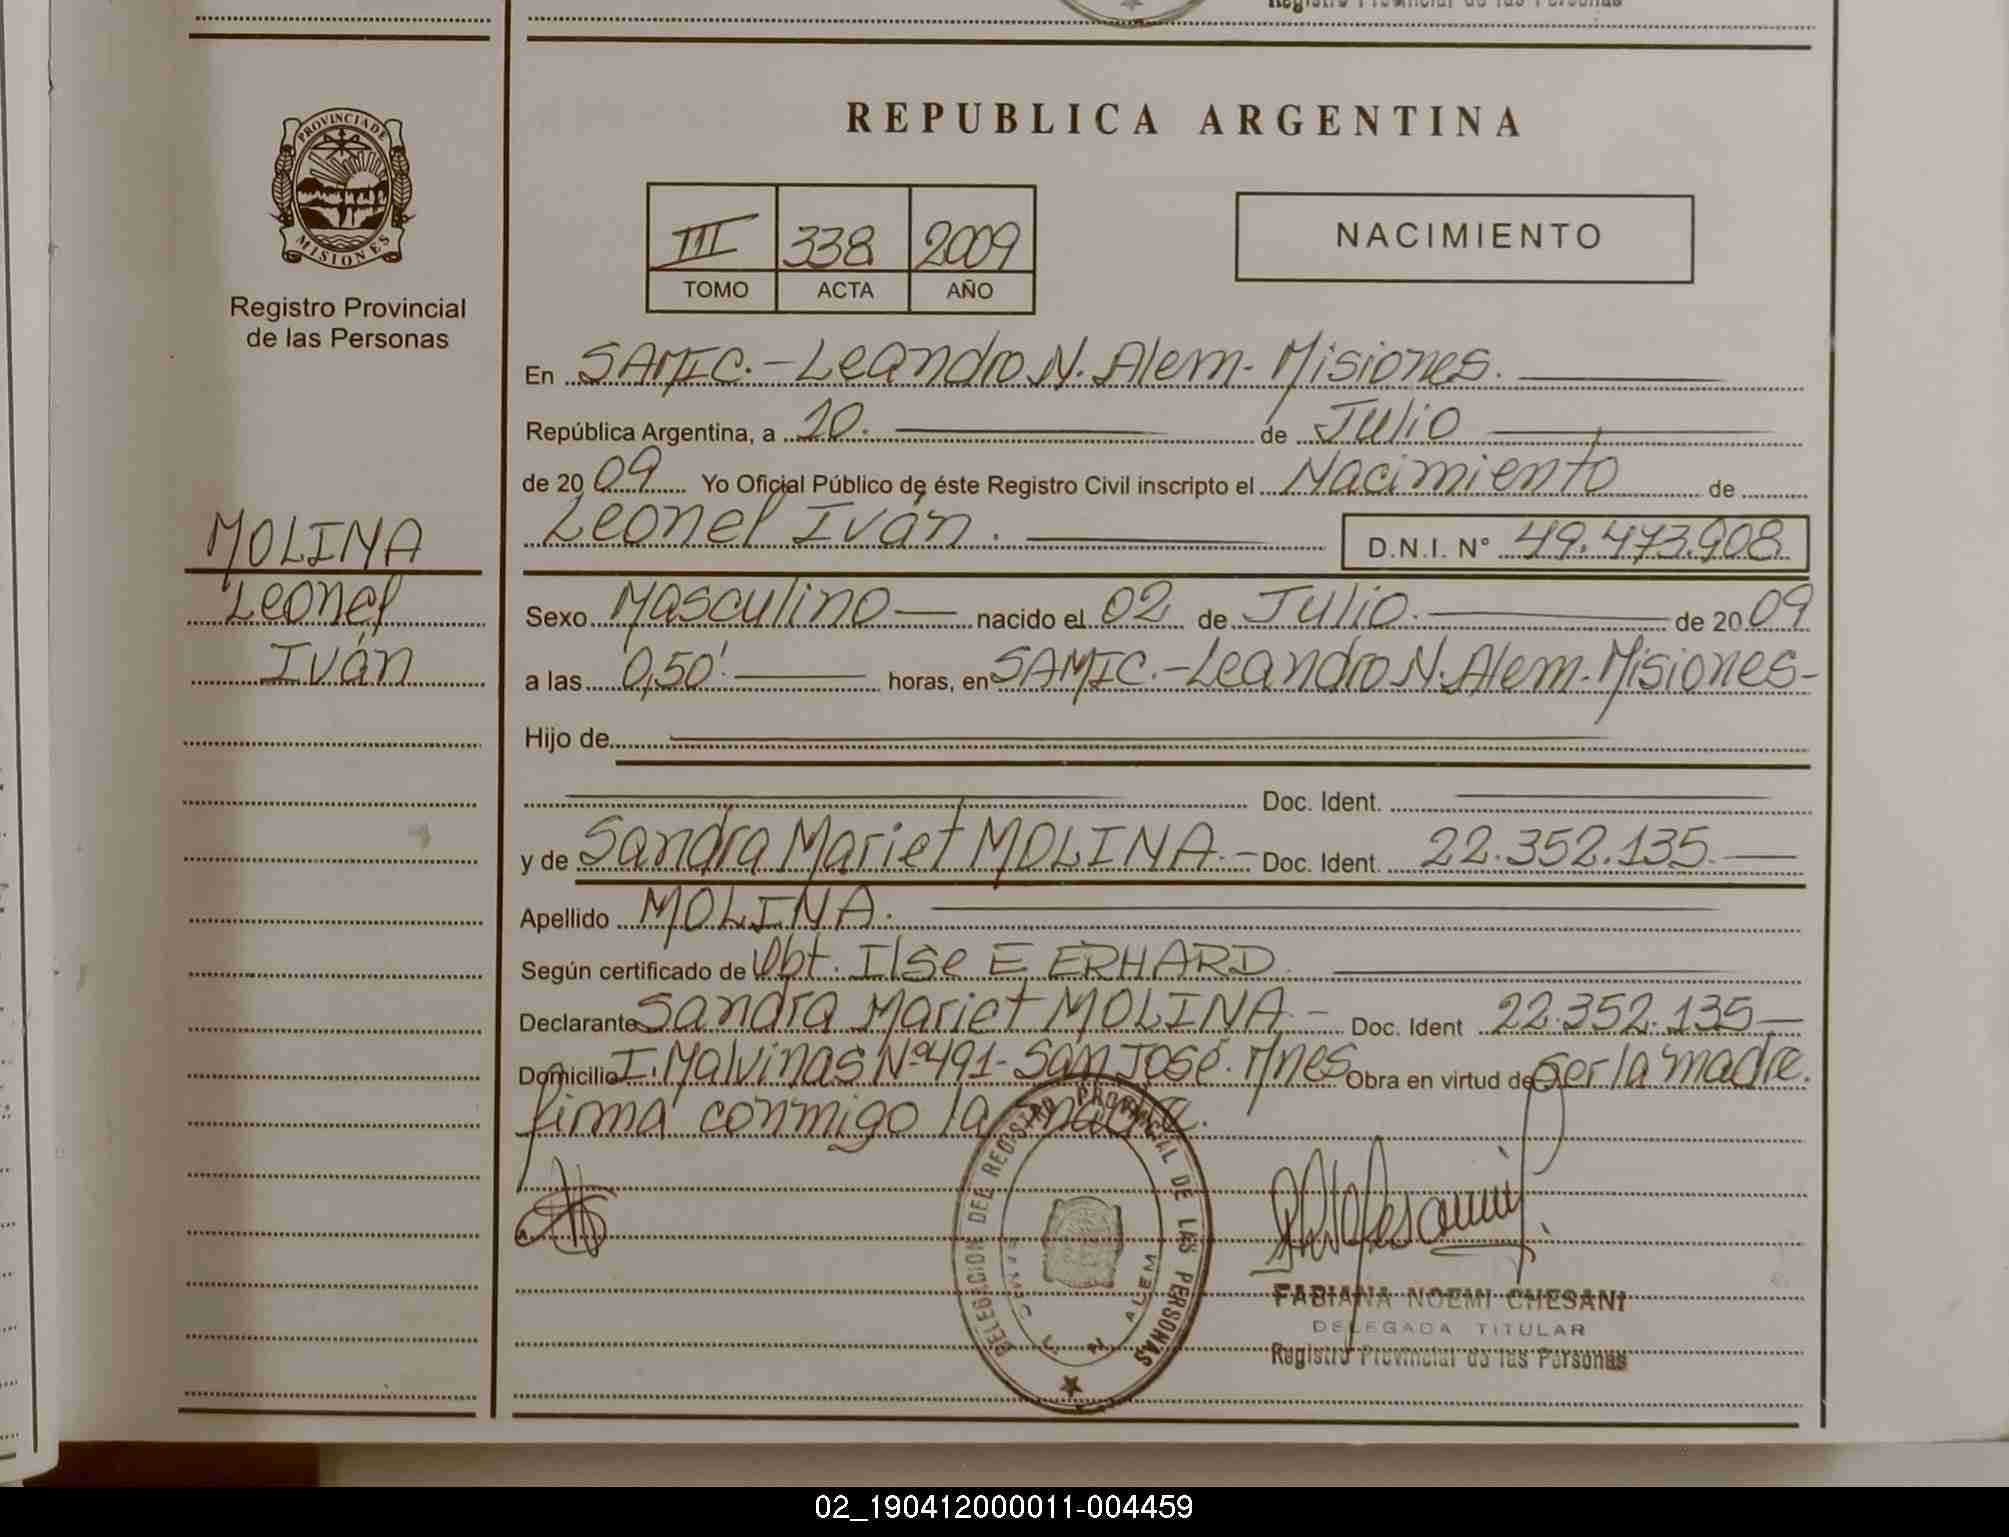 Registro Provincial de las Personas
REPUBLICA ARGENTINA
PROVINCIA DE
MISIONES
Registro Provincial
de las Personas
III 338 2009
TOMO ACTA AÑO
NACIMIENTO
En SAMIC.-Leandro N. Alem- Misiones.
República Argentina, a 10. de Julio
de 2009 Yo Oficial Público de éste Registro Civil inscripto el Nacimiento de
Leonel Iván. D.N.I. N° 49.473.908
MOLINA
Leonel
Iván
Sexo Masculino nacido el 02 de Julio. de 2009
a las 0,50' horas, en SAMIC.-Leandro N. Alem. Misiones-
Hijo de
Doc. Ident.
y de Sandra Mariet MOLINA.- Doc. Ident. 22.352.135.
Apellido MOLINA.
Según certificado de Obt. Ilse E ERHARD.
Declarante Sandra Mariet MOLINA.- Doc. Ident 22.352.135
Domicilio I. Malvinas Nº 491- San José. Mnes Obra en virtud de Ser la madre.
firma conmigo la madre.
DELEGACION DEL REGISTRO PROVINCIAL DE LAS PERSONAS
SAMIC L. N. ALEM
FABIANA NOEMI CHESANI
DELEGADA TITULAR
Registro Provincial de las Personas
02_190412000011-004459